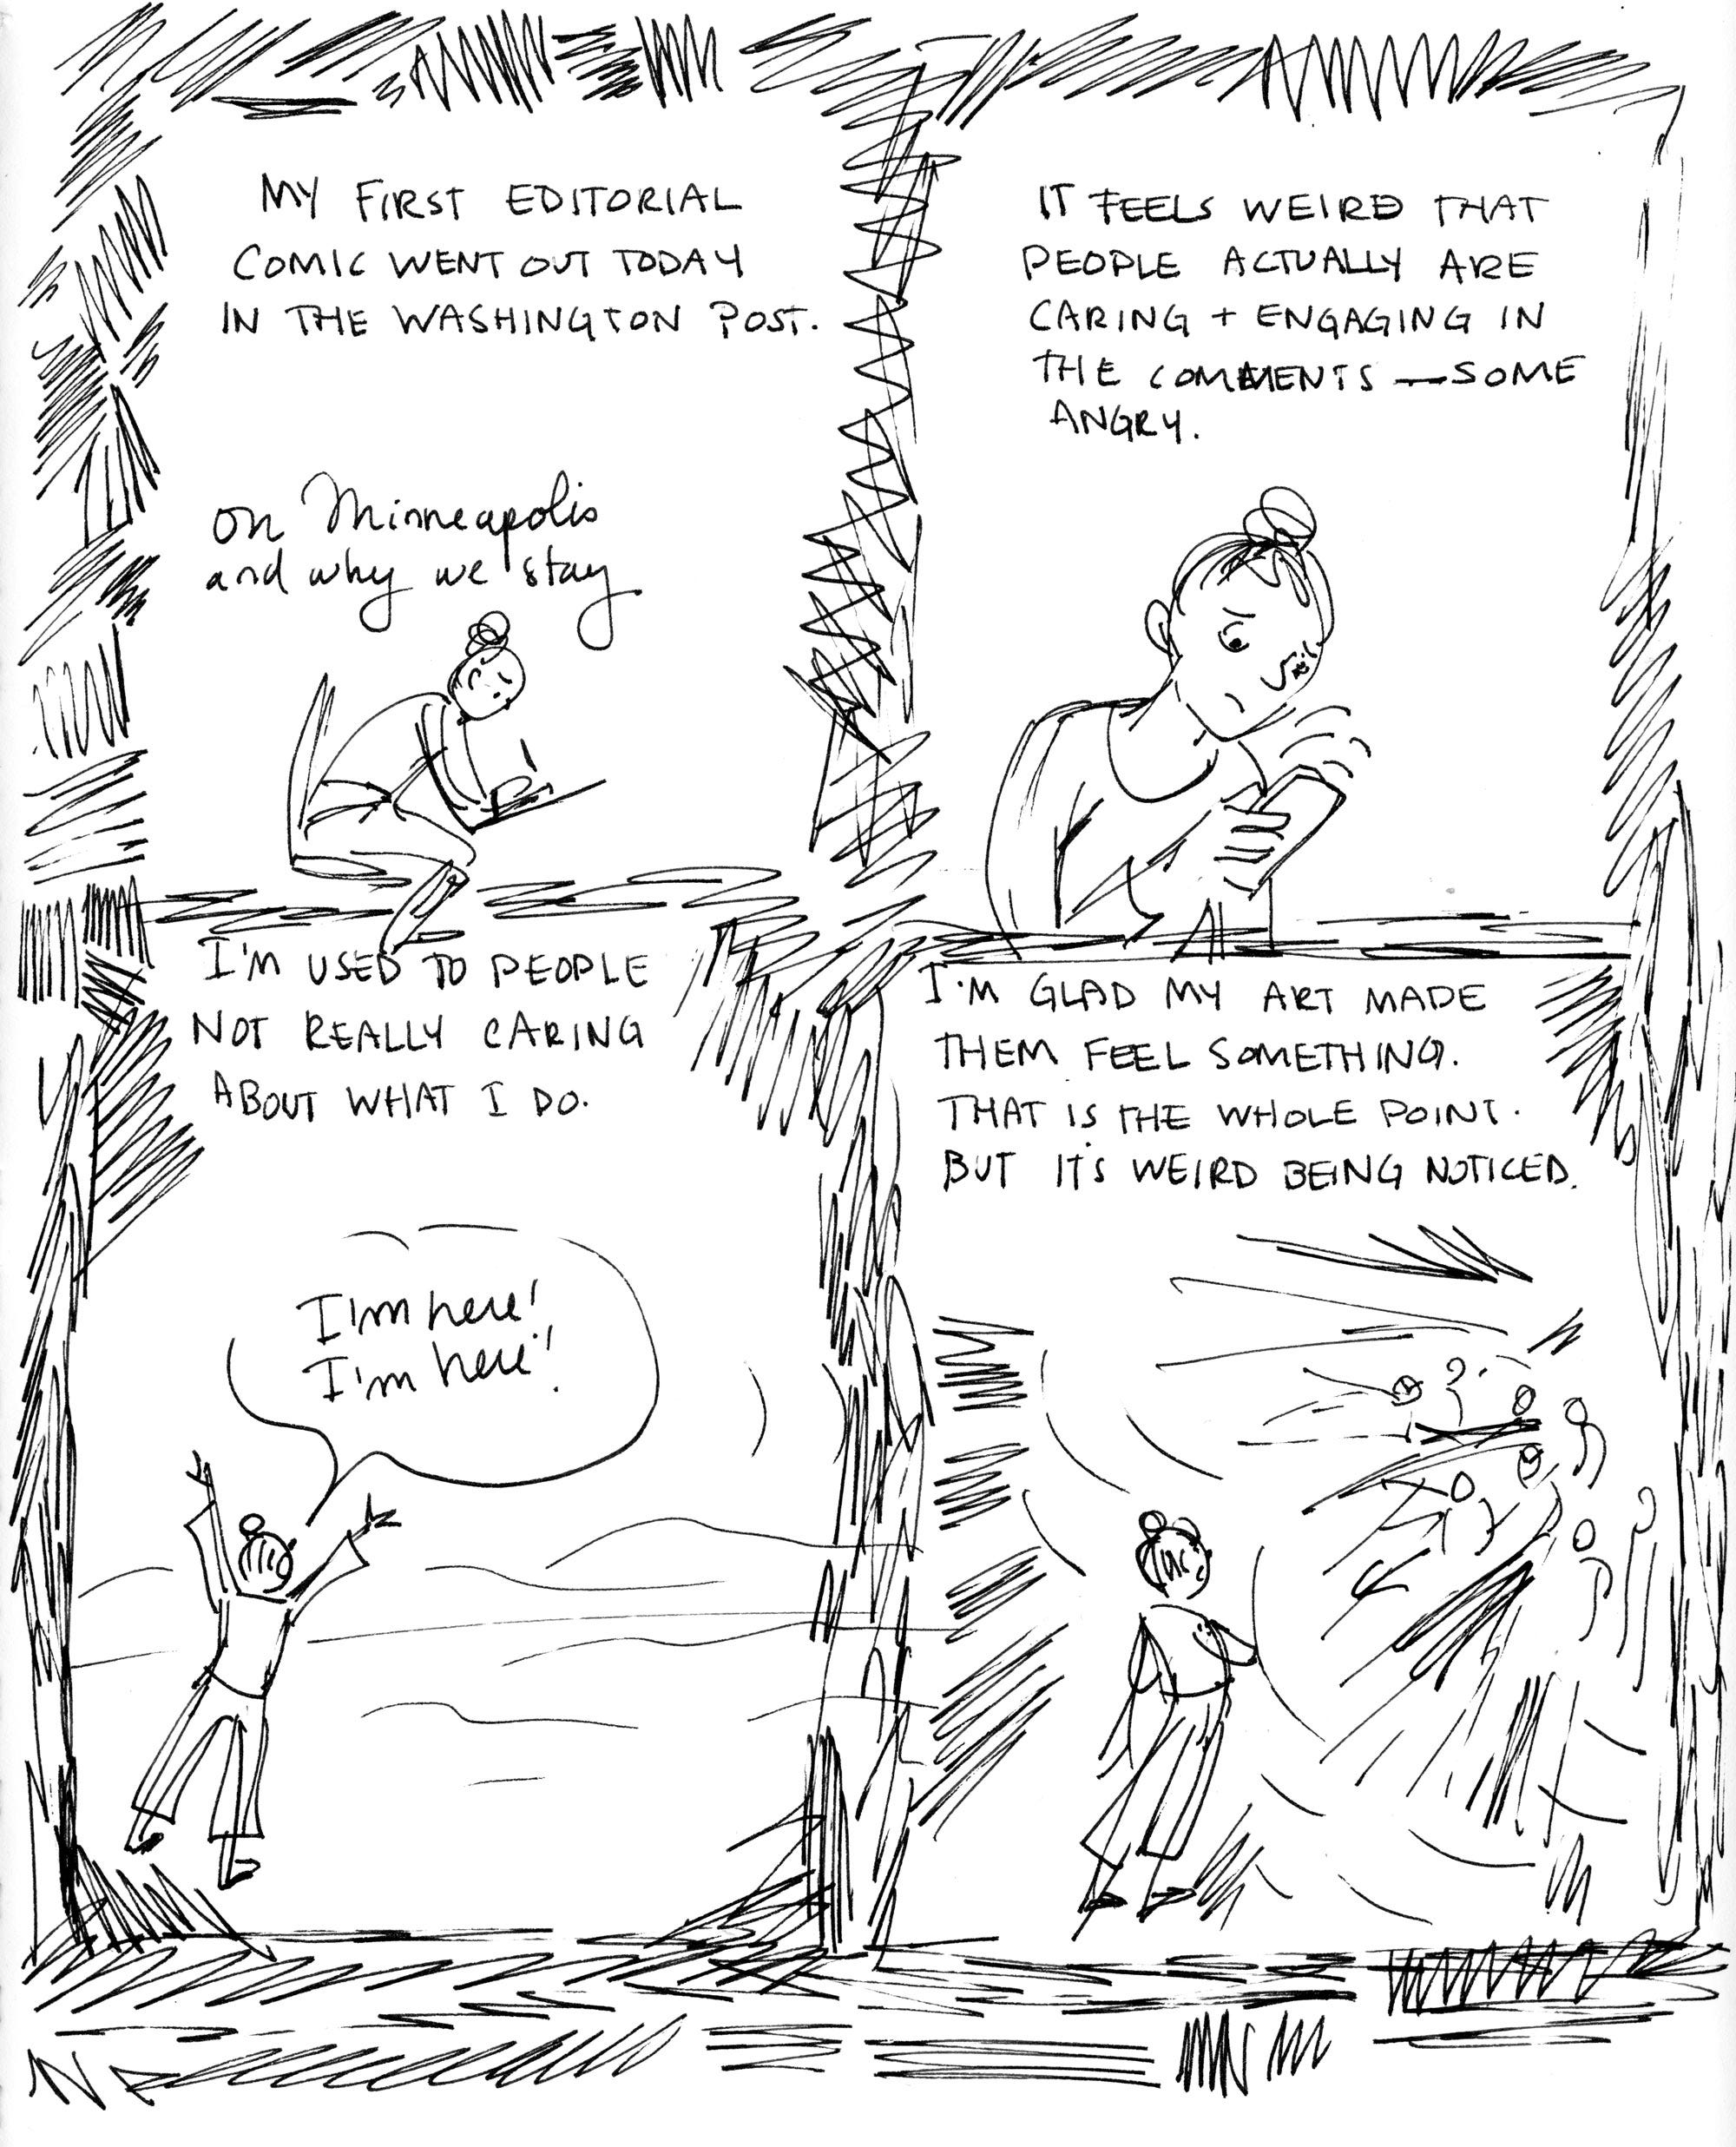 MY FIRST EDITORIAL
COMIC WENT OUT TODAY
IN THE WASHINGTON POST.
on Minneapolis
and why we stay
IT FEELS WEIRD THAT
PEOPLE ACTUALLY ARE
CARING + ENGAGING IN
THE COMMENTS — SOME
ANGRY.
I'M USED TO PEOPLE
NOT REALLY CARING
ABOUT WHAT I DO.
I'm here!
I'm here!
I'M GLAD MY ART MADE
THEM FEEL SOMETHING.
THAT IS THE WHOLE POINT.
BUT IT'S WEIRD BEING NOTICED.